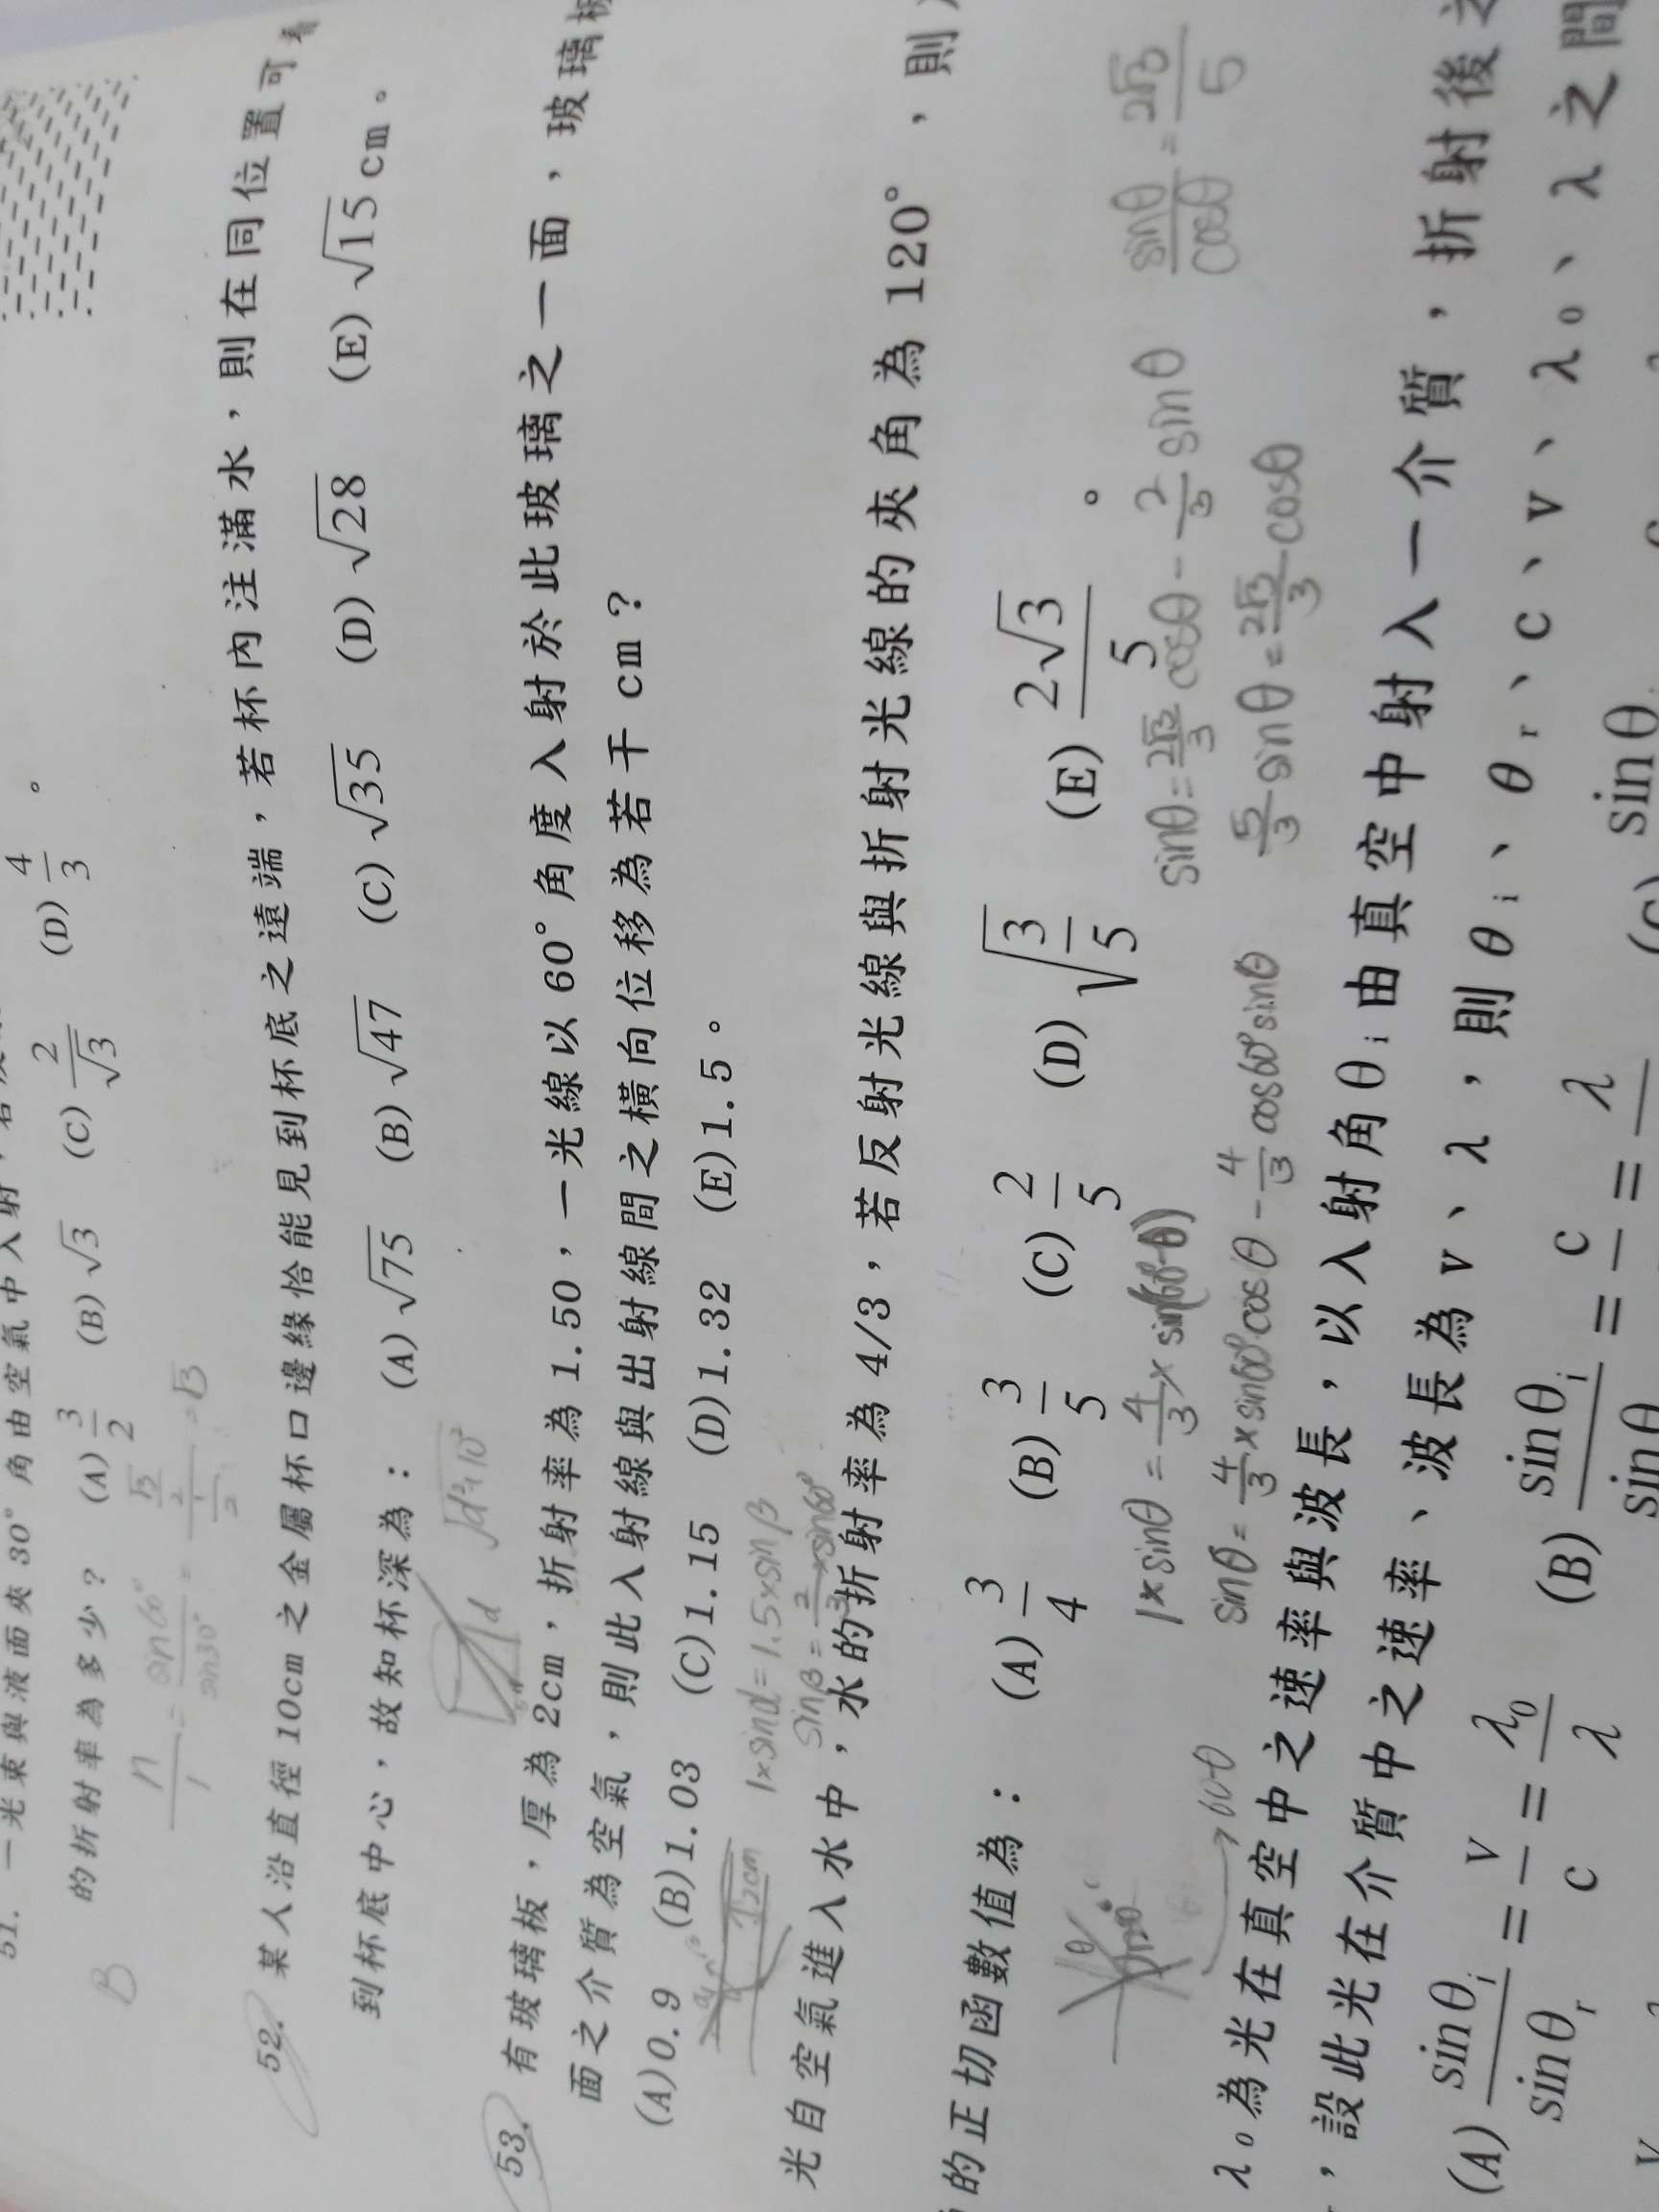 51. 一光束與液面夾30°角由空氣中入射，
的折射率為多少？ (A) 3/2 (B) √3 (C) 2/√3 (D) 4/3 。
n/1 = sin60°/sin30° = (√3/2)/(1/2) = √3
B
52. 某人沿直徑10cm之金屬杯口邊緣恰能見到杯底之遠端，若杯內注滿水，則在同位置可看
到杯底中心，故知杯深為： (A) √75 (B) √47 (C) √35 (D) √28 (E) √15 cm。
d
√d²+10²
53. 有玻璃板，厚為2cm，折射率為1.50，一光線以60°角度入射於此玻璃之一面，玻璃板
面之介質為空氣，則此入射線與出射線間之橫向位移為若干cm？
(A)0.9 (B)1.03 (C)1.15 (D)1.32 (E)1.5。
2cm
1×sinα=1.5×sinβ
sinβ=2/3×sin60°
光自空氣進入水中，水的折射率為4/3，若反射光線與折射光線的夾角為120°，則
的正切函數值為： (A) 3/4 (B) 3/5 (C) 2/5 (D) √(3/5) (E) 2√3/5 。
θ
120°
60-θ
1×sinθ = 4/3 × sin(60°-θ)
sinθ = 4/3 × sin60°cosθ - 4/3 cos60°sinθ
sinθ = 2√3/3 cosθ - 2/3 sinθ
5/3 sinθ = 2√3/3 cosθ
sinθ/cosθ = 2√3/5
λ₀為光在真空中之速率與波長，以入射角θi由真空中射入一介質，折射後之
，設此光在介質中之速率、波長為v、λ，則θi、θr、c、v、λ₀、λ之間
(A) sinθi/sinθr = v/c = λ₀/λ (B) sinθi/sinθ = c/ = λ/ (C) sinθ